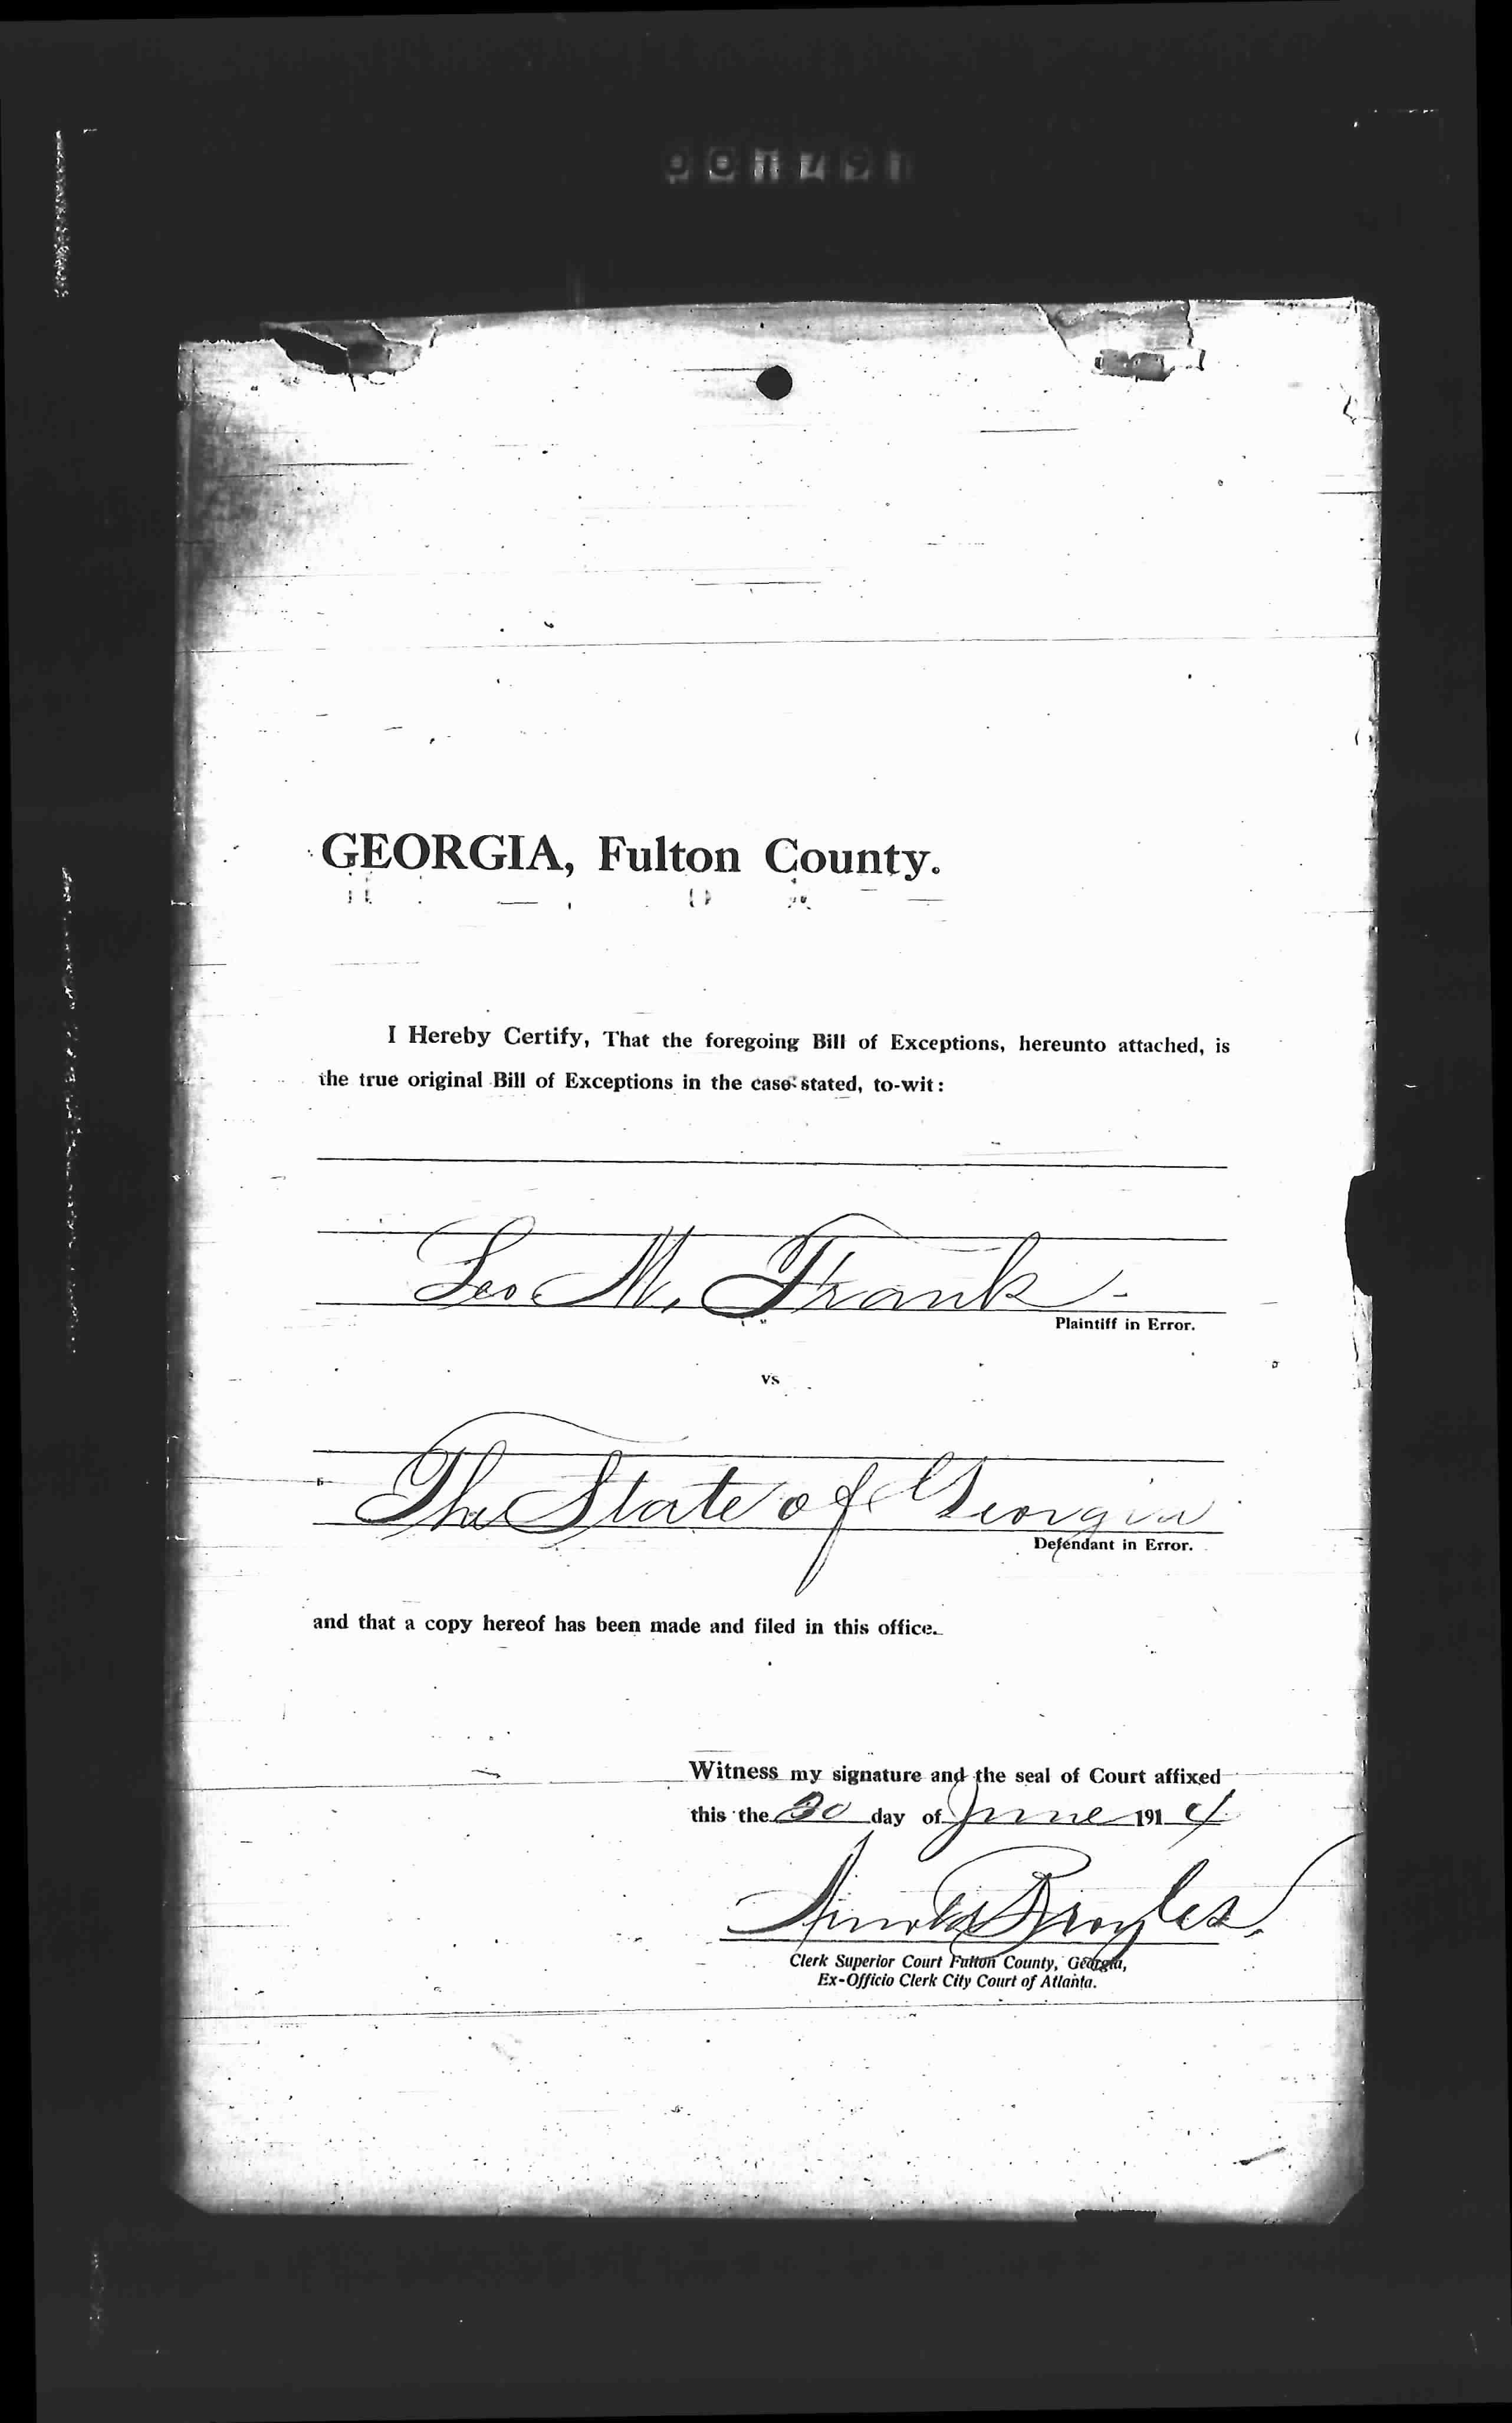 001791
GEORGIA, Fulton County.
I Hereby Certify, That the foregoing Bill of Exceptions, hereunto attached, is
the true original Bill of Exceptions in the case stated, to-wit:
Leo M. Frank
Plaintiff in Error.
vs
The State of Georgia
Defendant in Error.
and that a copy hereof has been made and filed in this office.
Witness my signature and the seal of Court affixed
this the 30 day of June 1914
Arnold Broyles
Clerk Superior Court Fulton County, Georgia,
Ex-Officio Clerk City Court of Atlanta.